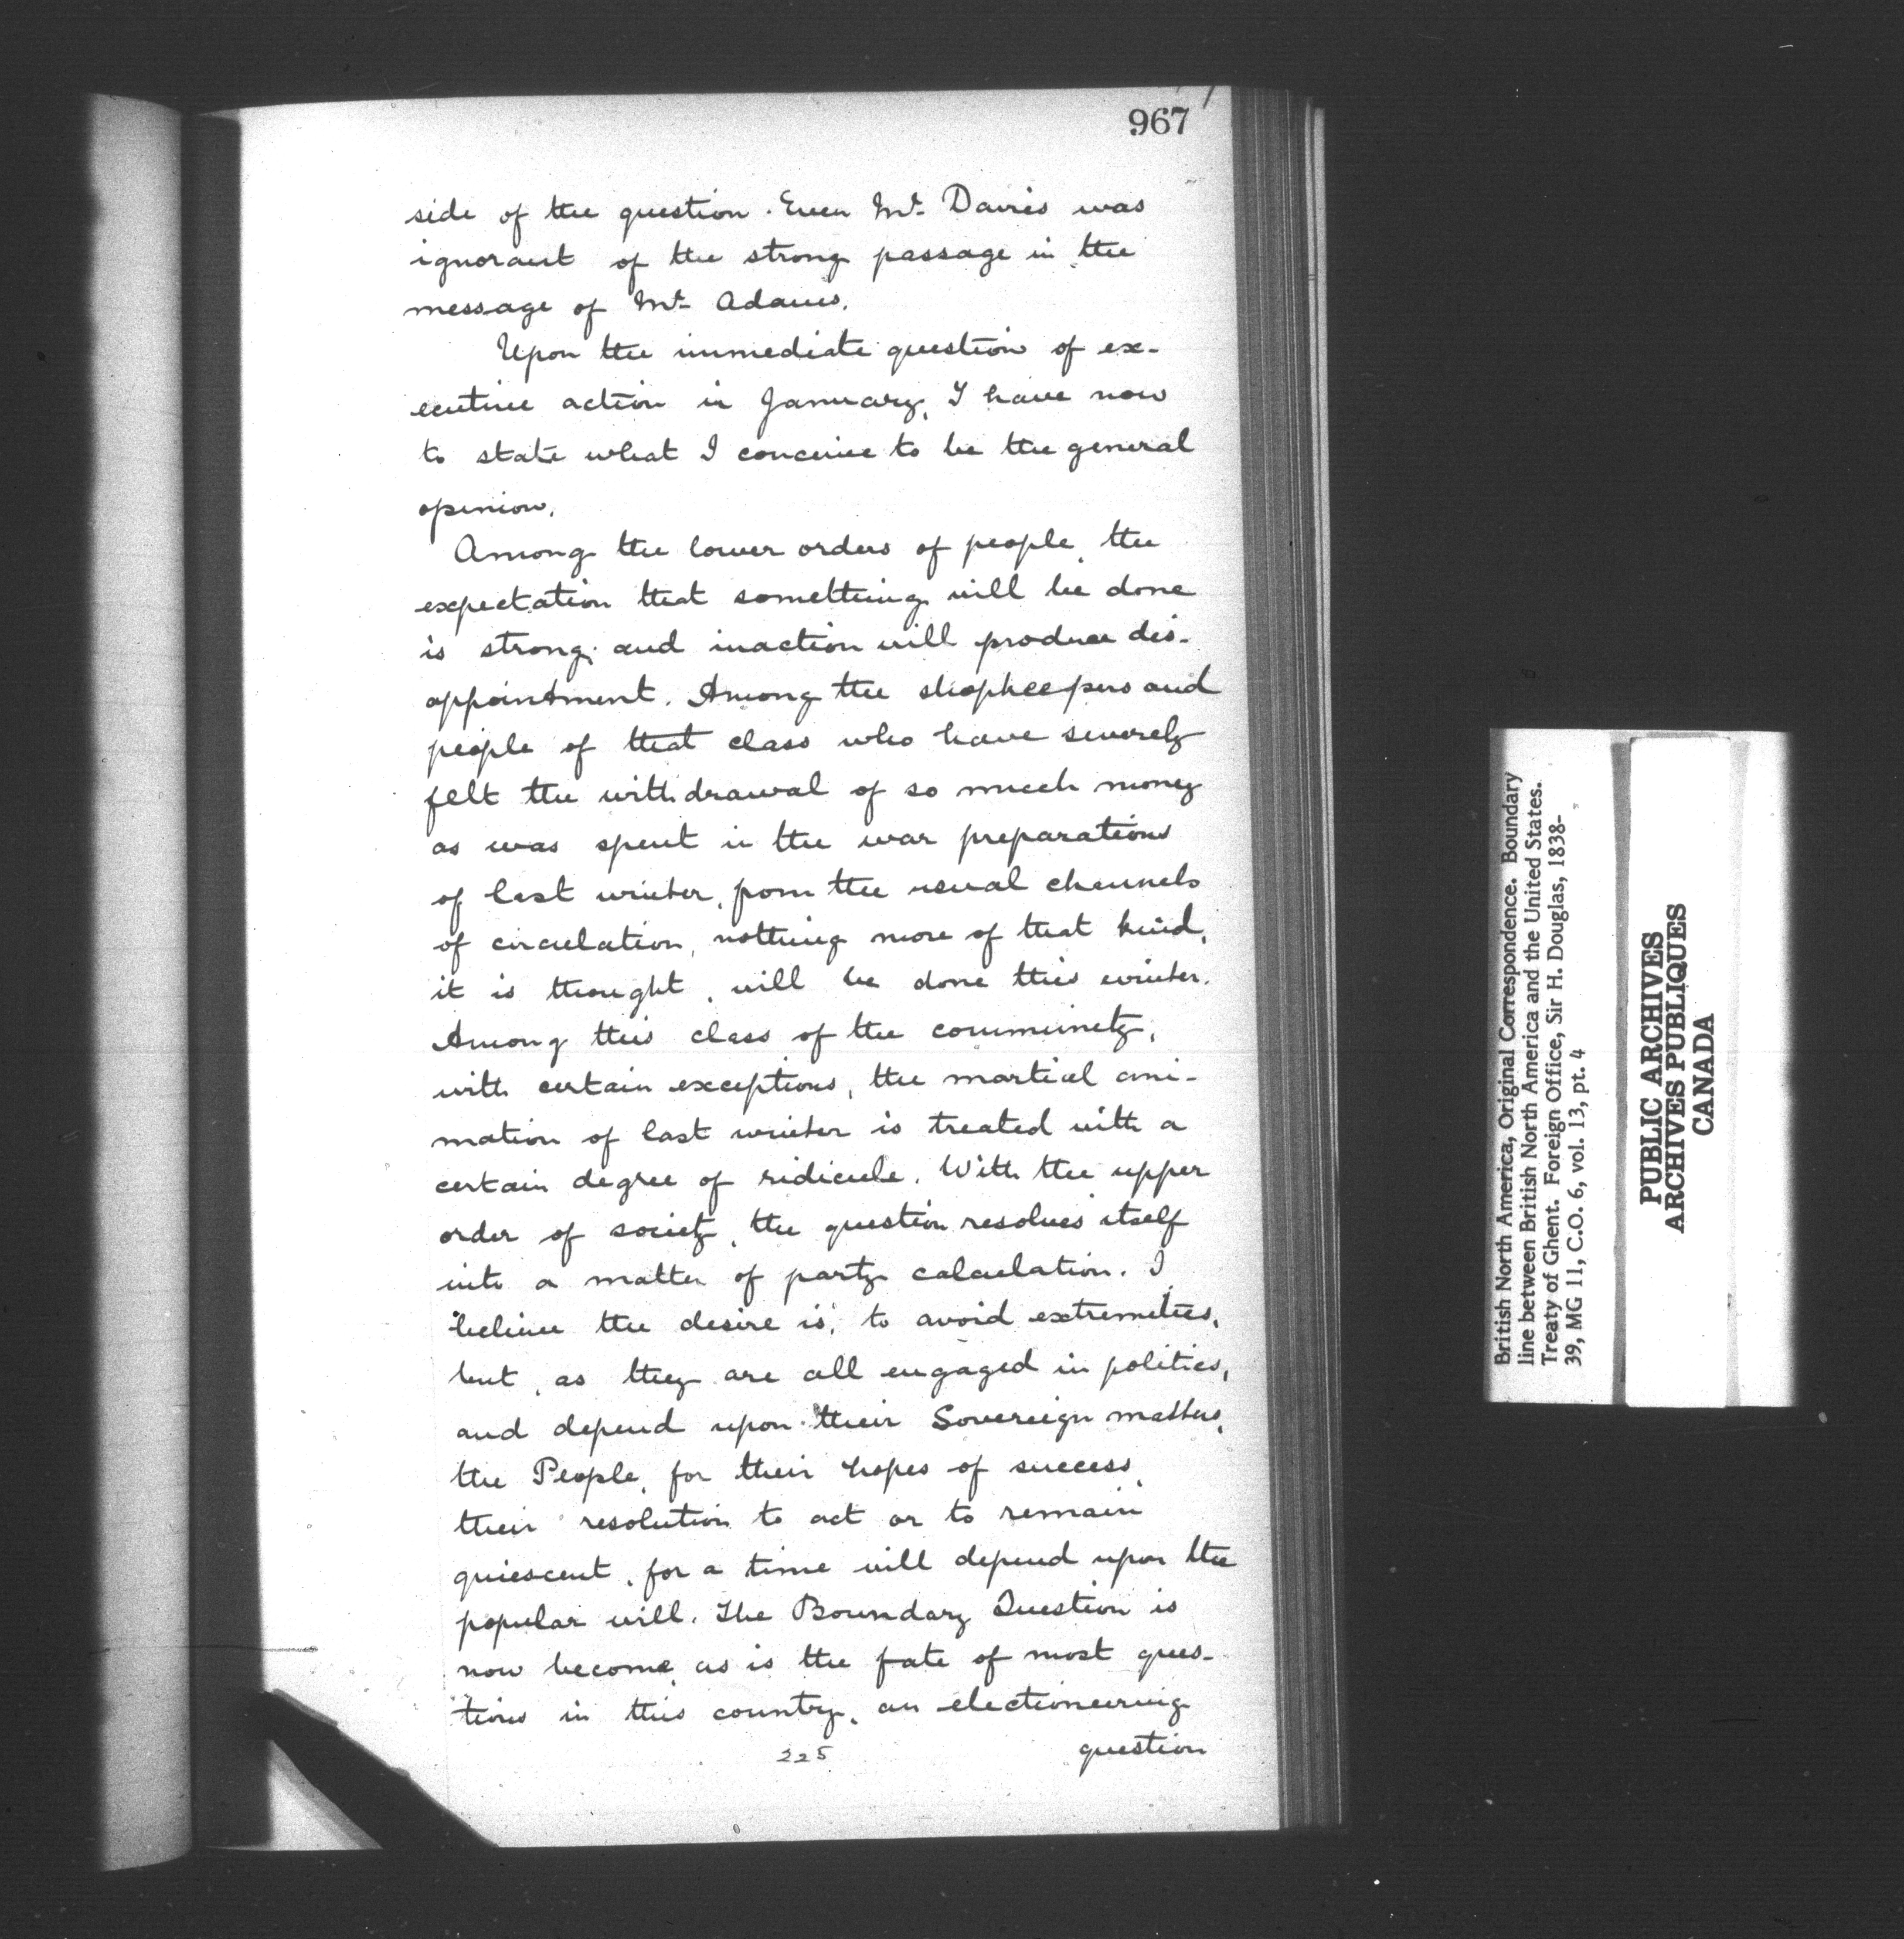 967
side of the question. Even Mr. Davies was
ignorant of the strong passage in the
message of Mr. Adams.
Upon the immediate question of ex-
ecutive action in January, I have now
to state what I conceive to be the general
opinion.
Among the lower orders of people, the
expectation that something will be done
is strong; and inaction will produce dis-
appointment. Among the shopkeepers and
people of that class who have severely
felt the withdrawal of so much money
as was spent in the war preparations
of last winter, from the usual channels
of circulation, nothing more of that kind,
it is thought, will be done this winter.
Among this class of the community,
with certain exceptions, the martial ani-
mation of last winter is treated with a
certain degree of ridicule. With the upper
order of society, the question resolves itself
into a matter of party calculation. I
believe the desire is, to avoid extremeties,
but, as they are all engaged in politics,
and depend upon their Sovereign masters,
the People, for their hopes of success,
their resolution to act or to remain
quiescent, for a time will depend upon the
popular will. The Boundary Question is
now become, as is the fate of most ques-
tions in this country, an electioneering
225 question
British North America, Original Correspondence. Boundary
line between British North America and the United States.
Treaty of Ghent. Foreign Office, Sir H. Douglas, 1838-
39, MG 11, C.O. 6, vol. 13, pt. 4
PUBLIC ARCHIVES
ARCHIVES PUBLIQUES
CANADA